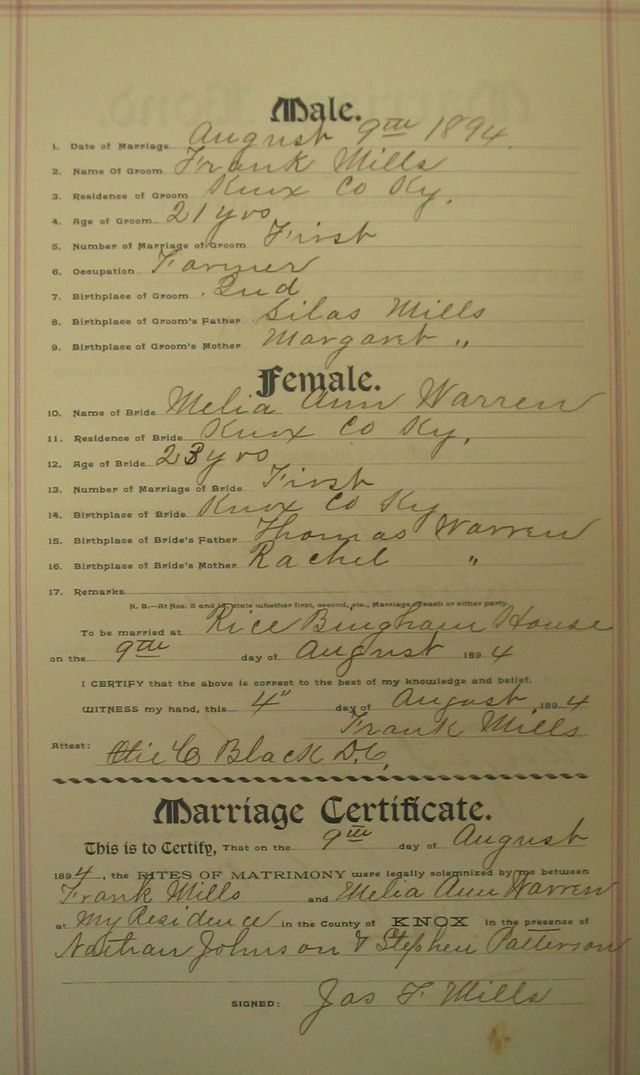 Male.
1. Date of Marriage August 9th 1894.
2. Name Of Groom Frank Mills
3. Residence of Groom Knox Co Ky.
4. Age of Groom 21 yrs
5. Number of Marriage of Groom First
6. Occupation Farmer
7. Birthplace of Groom Ind
8. Birthplace of Groom's Father Silas Mills
9. Birthplace of Groom's Mother Margaret "
Female.
10. Name of Bride Melia Ann Warren
11. Residence of Bride Knox Co Ky.
12. Age of Bride 23 yrs
13. Number of Marriage of Bride First
14. Birthplace of Bride Knox Co Ky
15. Birthplace of Bride's Father Thomas Warren
16. Birthplace of Bride's Mother Rachel "
17. Remarks
N. B.—At Nos. 5 and 13, state whether first, second, etc., Marriage of each or either party.
To be married at Rice Bingham House
on the 9th day of August 1894
I CERTIFY that the above is correct to the best of my knowledge and belief.
WITNESS my hand, this 4" day of August, 1894
Frank Mills
Attest: C Black D.C.
Marriage Certificate.
This is to Certify, That on the 9th day of August
1894, the RITES OF MATRIMONY were legally solemnized by me between
Frank Mills and Melia Ann Warren
at My Residence in the County of KNOX in the presence of
Nathan Johnson & Stephen Patterson
SIGNED: Jas F Mills